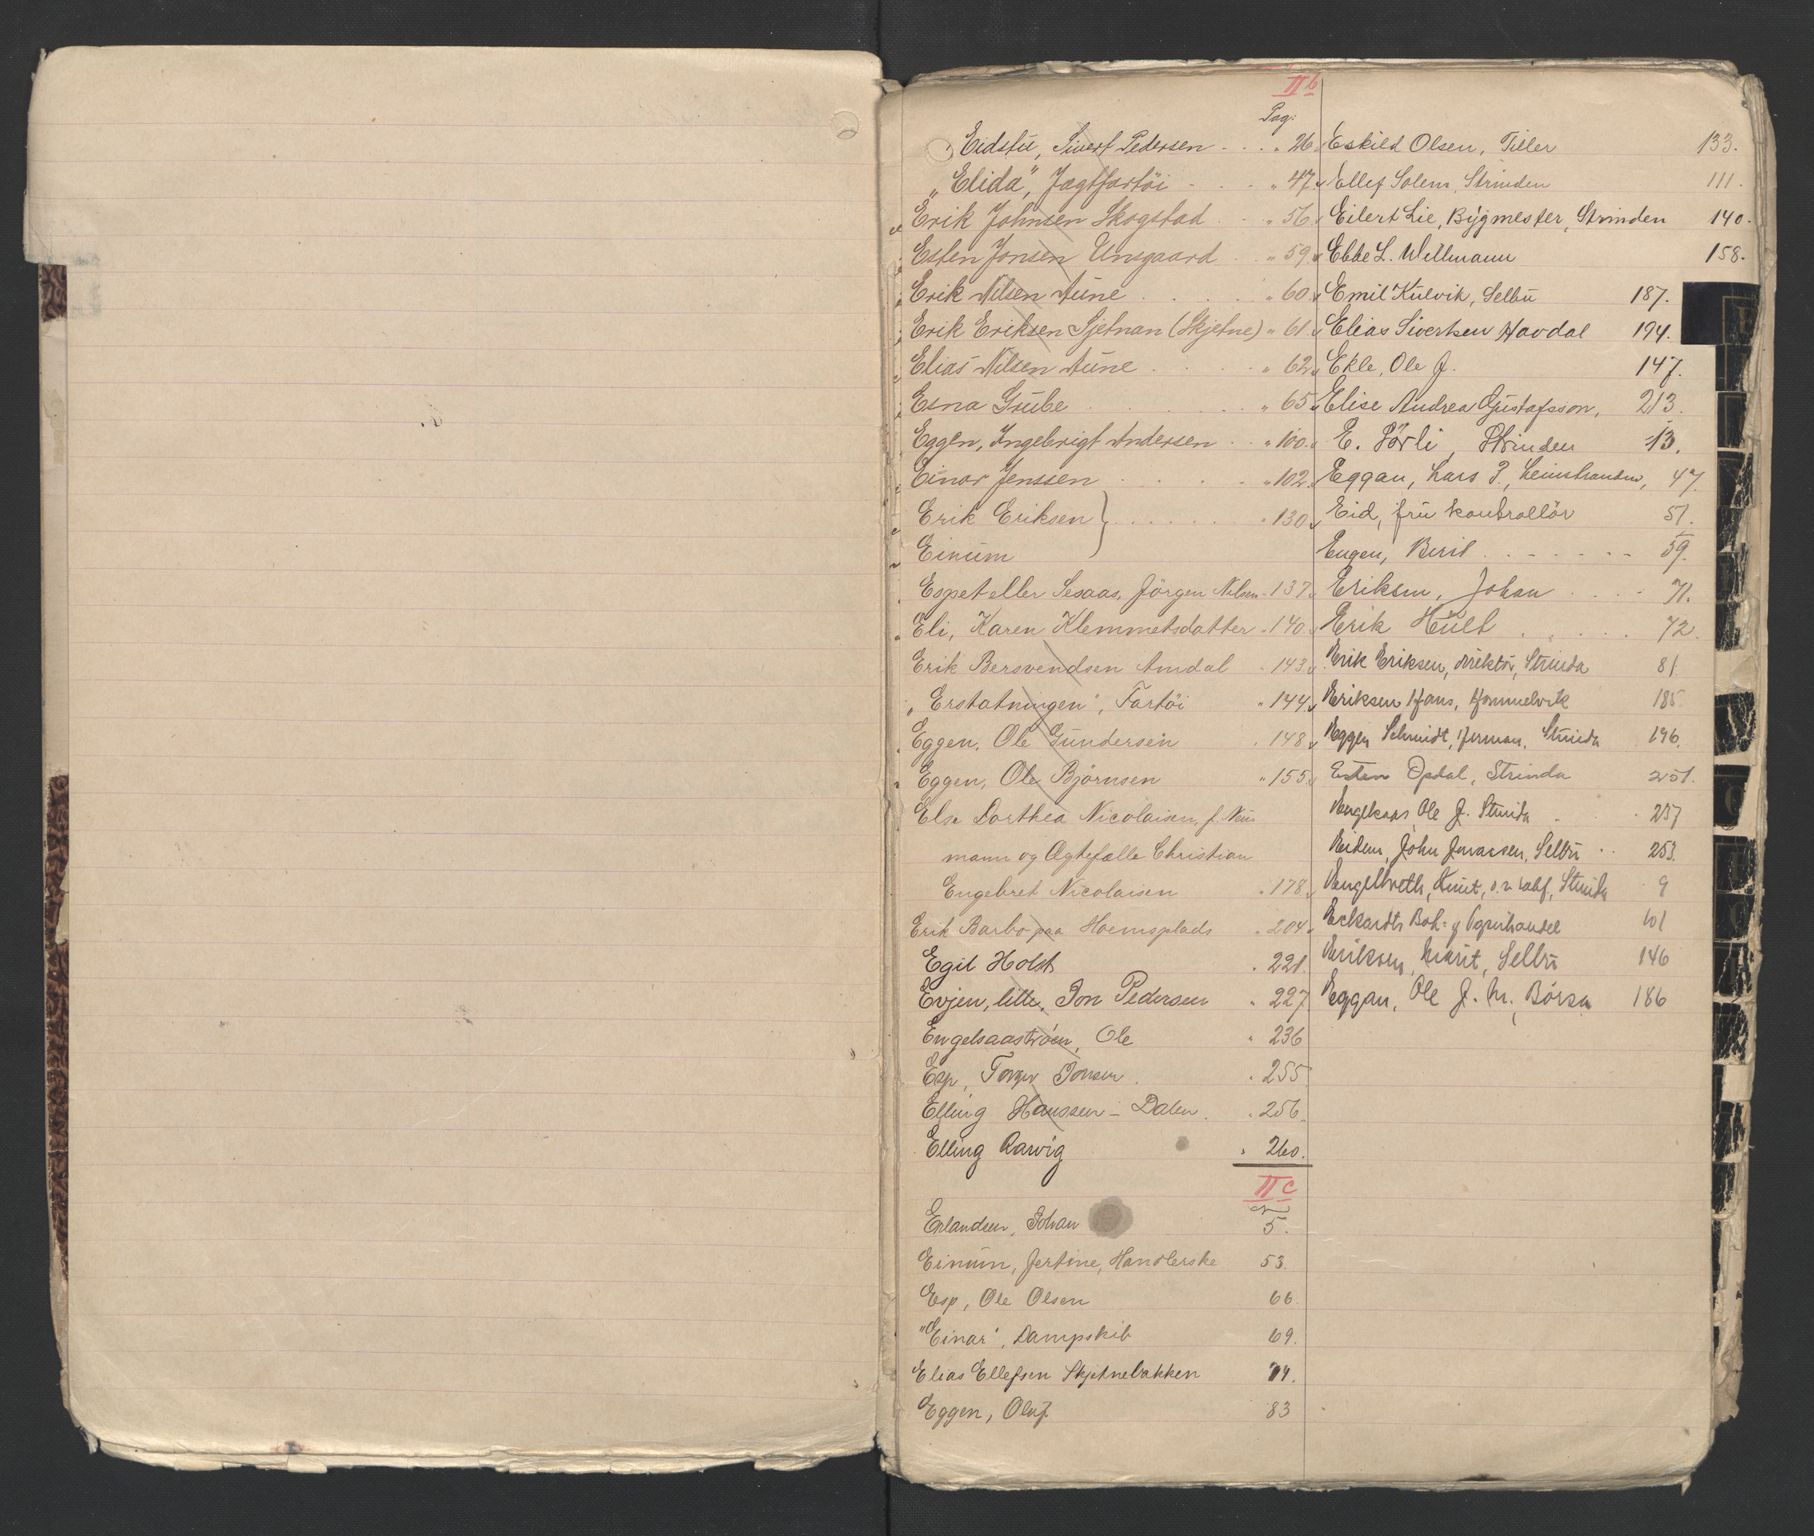 II b
Pag:
Eidstu, Sivert Pedersen - . . " 26
„Elida", Jagtfartöi - . . " 47
Erik Johnsen Skogstad . . " 56
Esten Jonsen Unsgaard . . " 59
Erik Nilsen Aune . . . . " 60
Erik Eriksen Sjetnan (Skjetne) " 61
Elias Nilsen Aune . . . . " 62
Esna Grube . . . . . " 65
Eggen, Ingebrigt Andersen . . " 100
Einar Jenssen . . . . . " 102
Erik Eriksen } . . . . . " 130
Einum
Espet eller Sesaas, Jörgen Nilsen " 137
Eli, Karen Klemmetsdatter " 140
Erik Bersvendsen Amdal " 143
„Erstatningen", Fartöi " 144
Eggen, Ole Gundersen " 148
Eggen, Ole Björnsen " 155
Else Dorthea Nicolaisen, f. Neu
mann og Ægtefælle Christian
Engebret Nicolaisen " 178
Erik Barbo paa Hoemsplads " 204
Egil Holst " 221
Evjen, lille, Jon Pedersen " 227
Engelsaastrøen, Ole " 236
Esp, Torger Jonsen . " 255
Elling Hanssen - Dalen . " 256
Elling Rawig " 260.
II c
Erlandsen, Johan 5.
Einum, Jertine, Handlerske 53.
Esp, Ole Olsen 66.
"Einar", Dampskib 69.
Elias Ellefsen Skjetnebakken 74.
Eggen, Oluf 83
Eskild Olsen, Tiller 133.
Ellef Solem, Strinden 111.
Eilert Lie, Bygmester, Strinden 140.
Ebbe L. Wellmann 158.
Emil Kulvik, Selbu 187.
Elias Sivertsen Havdal 194.
Ekle, Ole J. 147.
Elise Andrea Gustafsson, 213.
E. Pörli, Strinden 13.
Eggan, Lars P., Leinstranden, 47
Eid, fru kontrollör 51.
Eugen, Beril . . . . . . 59.
Eriksen, Johan . . . . 71.
Erik Hult . . . . . 72.
Erik Eriksen, direktör, Strinda 81
Eriksen Hans, Hommelvik 185
Eggen Schmidt, Herman, Strinda 196.
Esten Opdal, Strinda 251.
Engelsaas, Ole J. Strinda . . 257
Eidem, John Jonassen, Selbu . . 253.
Engelbreth, Knut, Strinda 9
Eckardts Bok- og Papirhandel 101
Eriksen, Marit, Selbu 146
Eggan, Ole J. M., Börsa 186